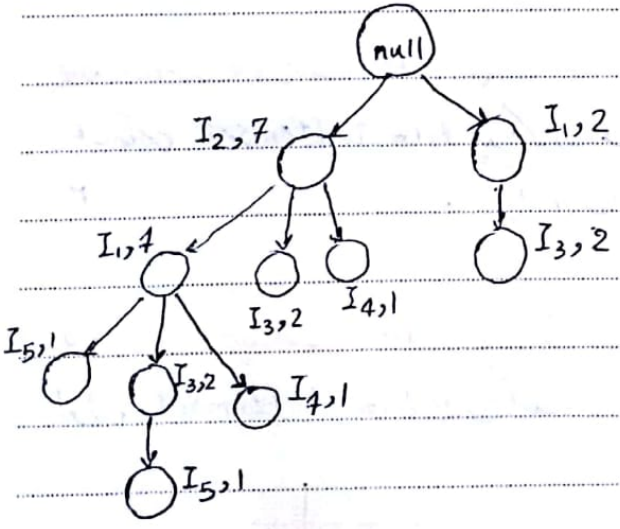 null
I₂,7
I₁,2
I₁,4
I₃,2
I₃,2
I₄,1
I₅,1
I₃,2
I₄,1
I₅,1